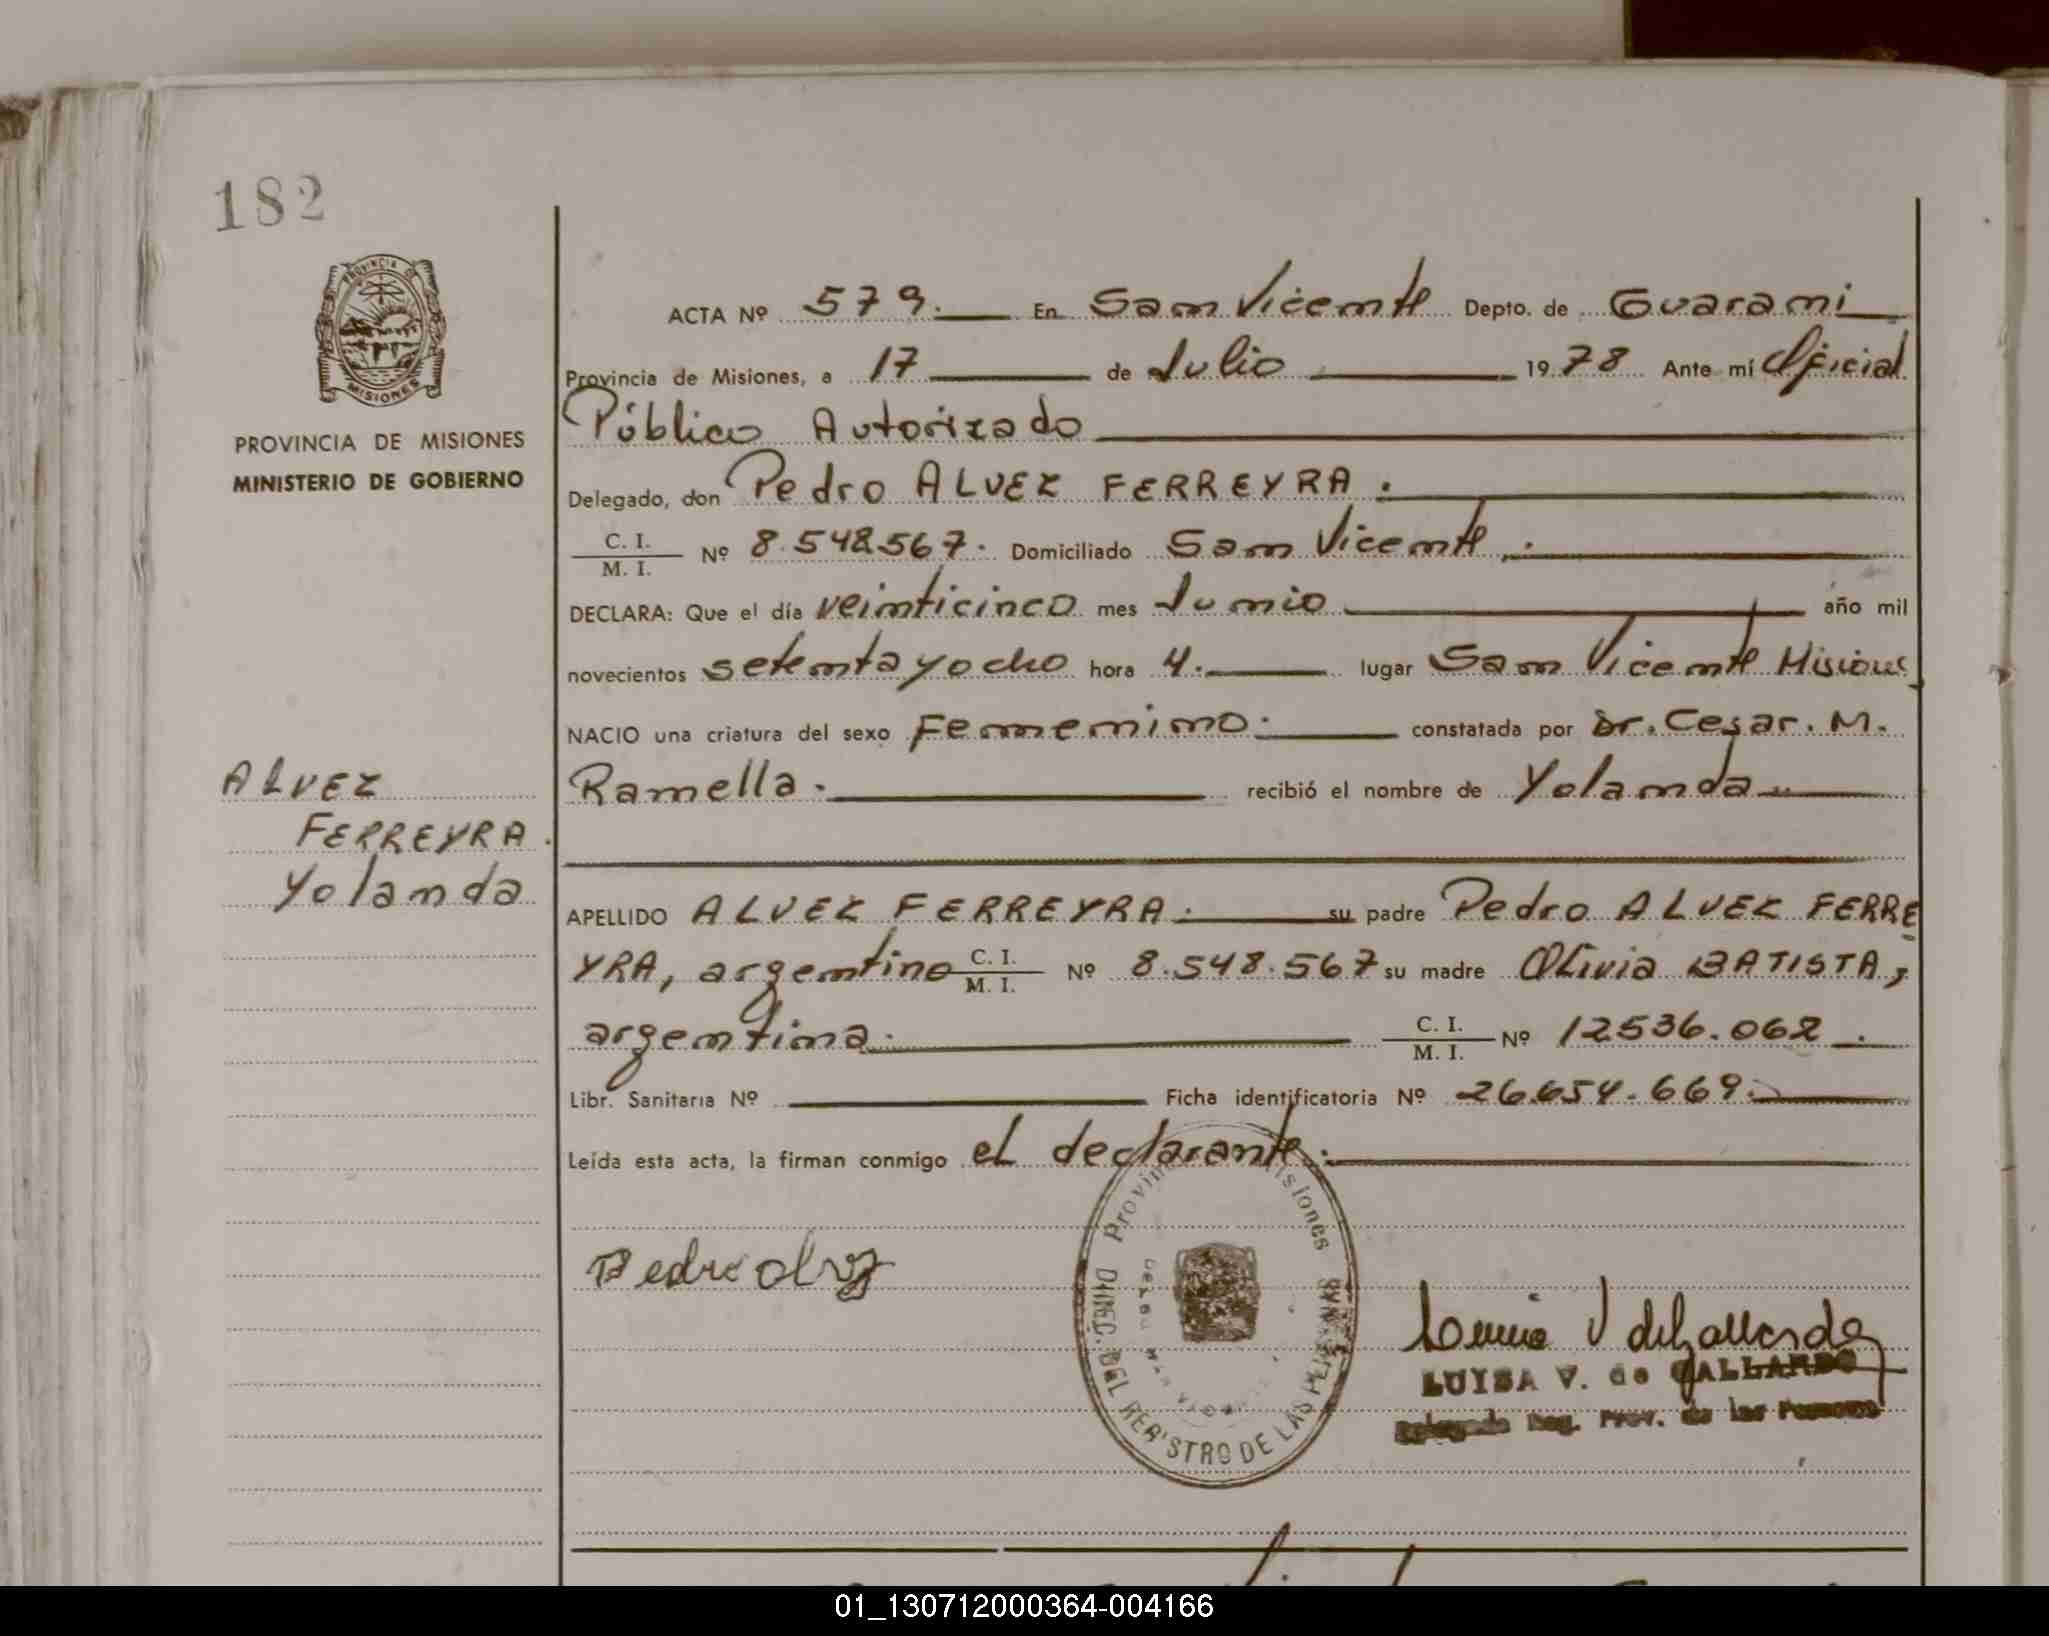 182
PROVINCIA DE MISIONES
PROVINCIA DE MISIONES
MINISTERIO DE GOBIERNO
ACTA Nº 579. En San Vicente Depto. de Guarani
Provincia de Misiones, a 17 de Julio 1978 Ante mí Oficial
Público Autorizado
Delegado, don Pedro ALVEZ FERREYRA.
C. I. / M. I. Nº 8.548.567. Domiciliado San Vicente.
DECLARA: Que el día veinticinco mes Junio año mil
novecientos setenta y ocho hora 4. lugar San Vicente Misiones
NACIO una criatura del sexo Femenino. constatada por Dr. Cesar. M.
Ramella. recibió el nombre de Yolanda
ALVEZ
FERREYRA.
Yolanda
APELLIDO ALVEZ FERREYRA. su padre Pedro ALVEZ FERRE
YRA, argentino C. I. / M. I. Nº 8.548.567 su madre Olivia BATISTA,
argentina. C. I. / M. I. Nº 12536.062.
Libr. Sanitaria Nº Ficha identificatoria Nº 26.654.669.
Leída esta acta, la firman conmigo el declarante.
Provin isiones
DIREC. DEL REGISTRO DE LAS PERSONAS
LUISA V. de GALLARDO
Delegada Reg. Prov. de las Personas
01_130712000364-004166